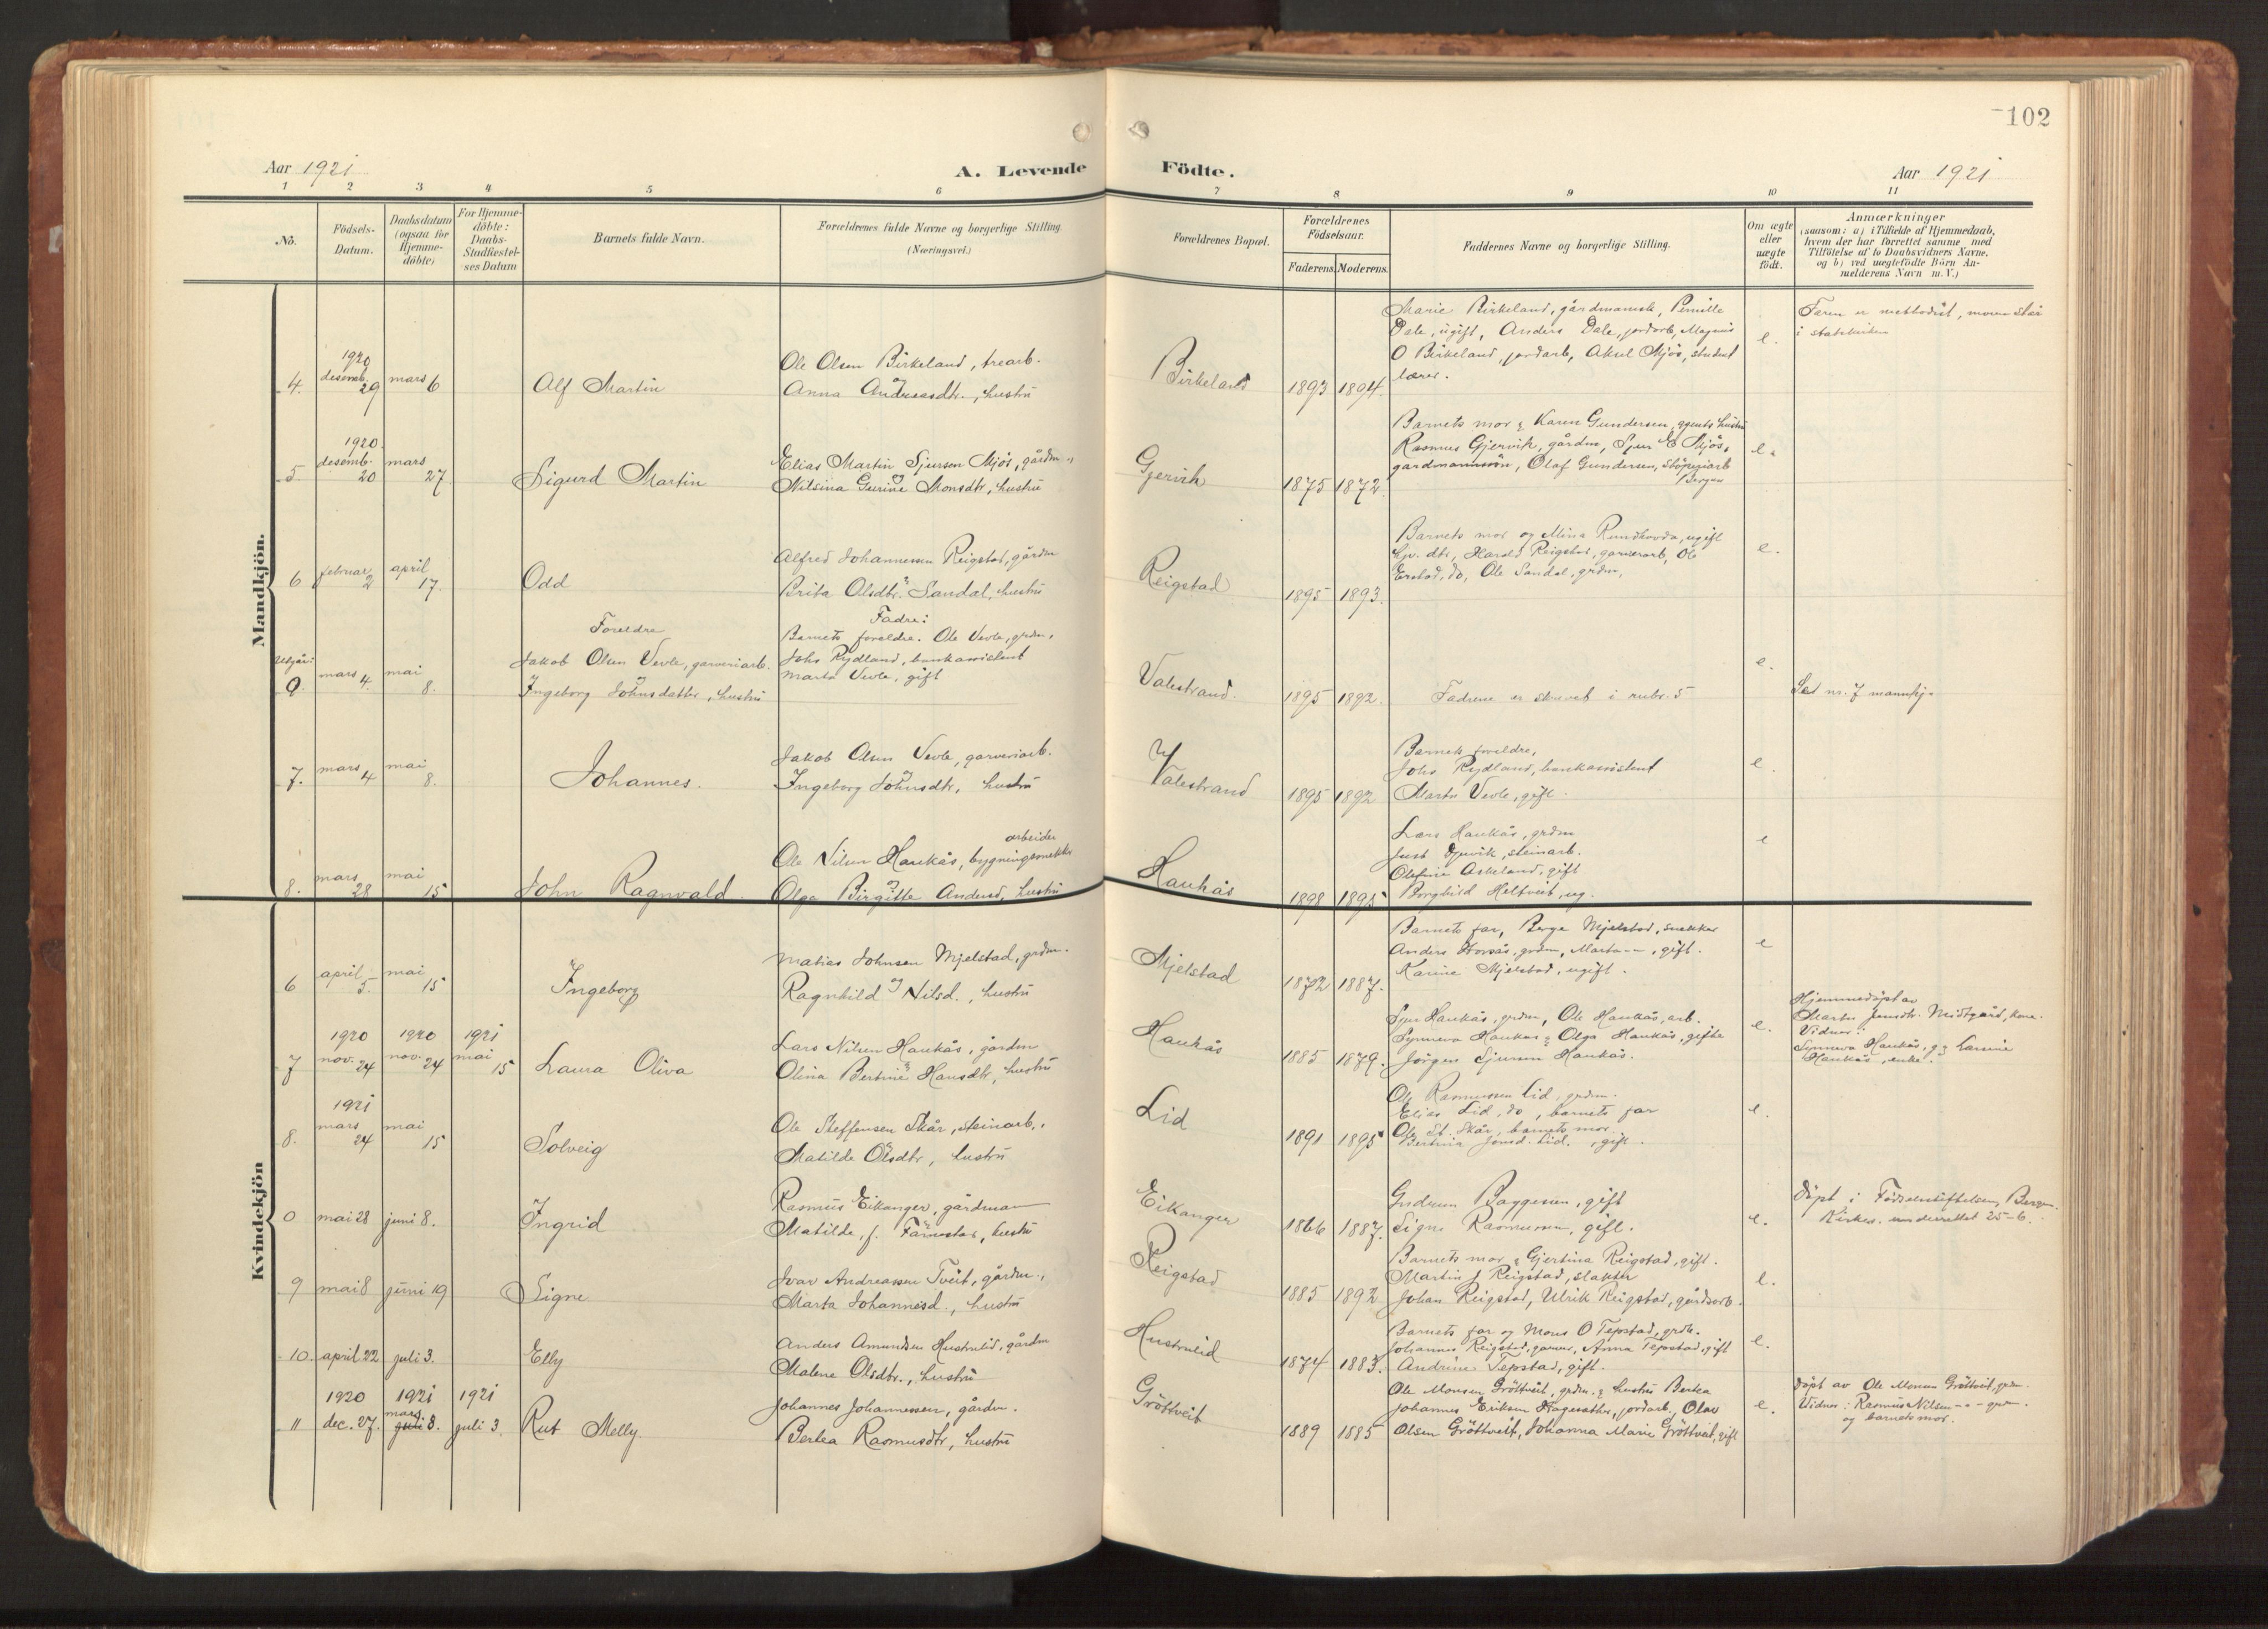 102
Aar 1921
A. Levende Födte.
Aar 1921
1 2 3 4 5 6 7 8 9 10 11
No.
Födsels-
Datum.
Daabsdatum
(ogsaa for
Hjemme-
döbte)
For Hjemme-
döbte:
Daabs-
Stadfæstel-
ses Datum
Barnets fulde Navn.
Forældrenes fulde Navne og borgerlige Stilling.
(Næringsvei.)
Forældrenes Bopæl.
Forældrenes
Födselsaar.
Faderens. Moderens.
Faddernes Navne og borgerlige Stilling.
Om ægte
eller
uægte
födt.
Anmærkninger
(saasom: a) i Tilfælde af Hjemmedaab,
hvem der har forrettet samme med
Tilföielse af to Daabsvidners Navne.
og b) ved uægtefödte Börn An-
melderens Navn m. V.)
Mandkjön.
4. 1920 desemb. 29 mars 6
Alf Martin
Ole Olsen Birkeland, trearb.
og
Anna Andreasdtr., hustru
Birkeland
1893 1894.
Marie Birkeland, gårdmannsk, Pernille
Dale, ugift, Anders Dale, jordarb, Magnus
O Birkeland, jordarb, Aksel Mjös, student
lærer.
e.
Faren er methodist, moren står
i statskirken
5. 1920. desemb. 20 mars 27.
Sigurd Martin
Elias Martin Sjursen Mjös, gårdm.,
og
Nilsina Gurine Monsdtr, hustru
Gjervik
1875 1872.
Barnets mor & Karen Gundersen, agents hustru
Rasmus Gjervik, gårdm, Sjur E Mjös,
gardmannssön, Olaf Gundersen, stöperiarb
Bergen
e.
6 februar 2 april 17.
Odd
Alfred Johannessen Reigstad, gårdm
Brita Olsdtr. Sandal, hustru
Reigstad
1895 1893.
Barnets mor og Mina Rundhovda, ugift
Gv. dtr, Harald Reigstad, garverarb, Ole
Erstad, do, Ole Sandal, grdm,
e.
0. mars 4. mai 8.
Foreldre
Jakob Olsen Vevle, garveriarb.
Ingeborg Johnsdatter, hustru
Fadre:
Barnets foreldre. Ole Vevle, grdm,
Johs Rydland, bankassistent
Marta Vevle, gift
Valestrand.
1895 1892.
Fadrene er skrevet i rubr. 5
e.
Set nr. 7 mannkj.
7. mars 4 mai 8.
Johannes.
Jakob Olsen Vevle, garveriarb.
og
Ingeborg Johnsdtr, hustru
Valestrand
1895 1892
Barnets foreldre,
Johs Rydland, bankassistent
Marta Vevle, gift.
e.
8. mars 28 mai 15
John Ragnvald.
arbeider
Ole Nilsen Haukås, bygningssnekker
og
Olga Birgitte Andersd, hustru
Haukås
1898 1895
Lars Haukås, grdm
Just Gjervik, steinarb.
Olefine Askeland, gift
Borghild Heltveit, ug.
e
Kvindekjön
6 april 5. mai 15
Ingeborg
Matias Johnsen Mjelstad, grdm.
og
Ragnhild Nilsd., hustru
Mjelstad
1872 1887.
Barnets far, Berge Mjelstad, snekker
Anders Horsås, grdm, Marta –"–, gift.
Karine Mjelstad, ugift.
e
7 1920 nov. 24 1920 nov. 24 1921 mai 15
Laura Oliva
Lars Nilsen Haukås, gårdm
&
Olina Bertine Hansdtr, hustru
Haukås
1885 1879.
Sjur Haukås, grdm, Ole Haukås, arb.
Synneva Haukås & Olga Haukås, gifte
Jörgen Sjursen Haukås.
e.
Hjemmedöpt av
Marta Jonsdtr. Midtgård, kone.
Vidner:
Synneva Haukås, g. & Larsine
Haukås, enke.
8. 1921 mars 24 mai 15
Solveig
Ole Steffensen Skår, steinarb.,
Matilde Olsdtr, hustru
Lid
1891 1895
Ole Rasmussen Lid, grdm.
Elias Lid, do, barnets far
Ole St. Skår, barnets mor
Bertina Jonsd. Lid., gift.
e.
0 mai 28 juni 8.
Ingrid
Rasmus Eikanger, gårdman
Matilde, f. Fammestad, hustru
Eikanger
1866 1887.
Gudrun Baggesen, gift
Signe Rasmussen, gift.
e.
Döpt i Födselsstiftelsen, Bergen.
Kirkev. underrettet 25-6.
9 mai 8 juni 19
Signe
Ivar Andreassen Tveit, gårdm.,
Marta Johannesd., hustru
Reigstad
1885 1892
Barnets mor & Gjertina Reigstad, gift.
Martin J Reigstad, slakter
Johan Reigstad, Ulrik Reigstad, gårdsarb.
e.
10. april 22 juli 3.
Elly
Anders Amundsen Hustrulid, gårdm
Malene Olsdtr., hustru
Hustrulid
1874 1883.
Barnets far og Mons O Tepstad, grdm.
Johannes Reigstad, garver, Anna Tepstad, gift
Andrine Tepstad, gift.
e.
11 1920 dec. 27. 1921 mars 8. 1921 juli 3.
Rut Melly.
Johannes Johannessen, gårdm.
Bertea Rasmusdtr, hustru
Gröttveit
1889 1885
Ole Monsen Gröttveit, grdm. & hustru Bertea
Johannes Eriksen Hagesæther, jordarb, Olav
Olsen Gröttveit, Johanna Marie Gröttveit, gift
e.
Döpt av Ole Monsen Gröttveit, grdm.
Vidner: Rasmus Nilsen –"– grdm.
og barnets mor.